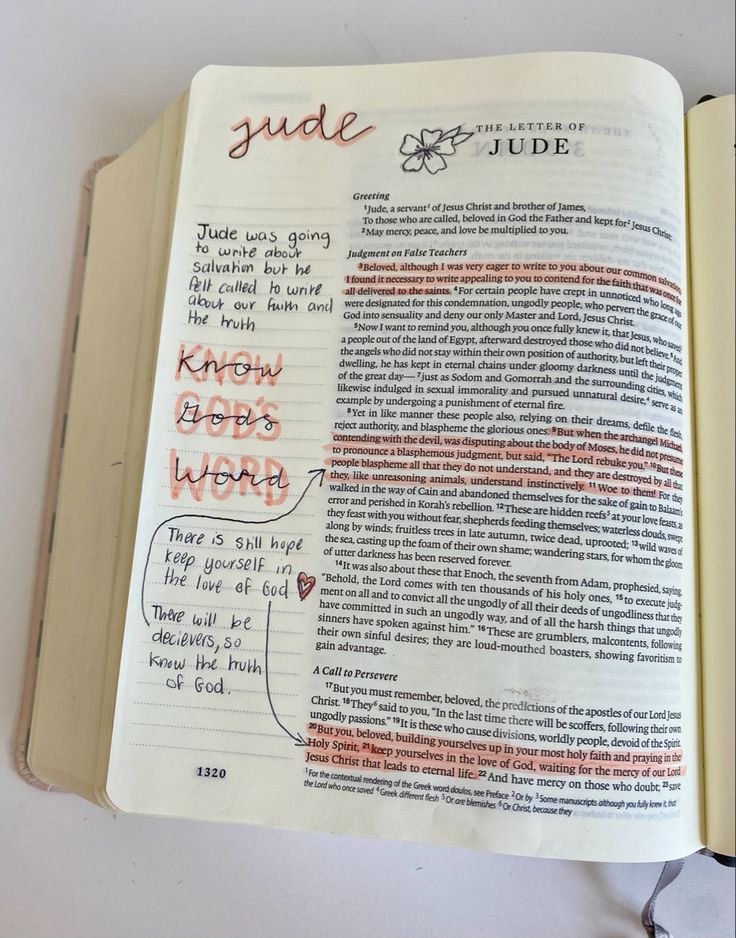 jude
THE LETTER OF
JUDE
Jude was going
to write about
salvation but he
felt called to write
about our faith and
the truth
KNOW
Know
GOD'S
Gods
WORD
Word
There is still hope
keep yourself in
the love of God
There will be
decievers, so
know the truth
of God.
1320
Greeting
1Jude, a servant1 of Jesus Christ and brother of James,
To those who are called, beloved in God the Father and kept for2 Jesus Christ:
2May mercy, peace, and love be multiplied to you.
Judgment on False Teachers
3Beloved, although I was very eager to write to you about our common salvation,
I found it necessary to write appealing to you to contend for the faith that was once for
all delivered to the saints. 4For certain people have crept in unnoticed who long ago
were designated for this condemnation, ungodly people, who pervert the grace of our
God into sensuality and deny our only Master and Lord, Jesus Christ.
5Now I want to remind you, although you once fully knew it, that Jesus, who saved
a people out of the land of Egypt, afterward destroyed those who did not believe. 6And
the angels who did not stay within their own position of authority, but left their proper
dwelling, he has kept in eternal chains under gloomy darkness until the judgment
of the great day— 7just as Sodom and Gomorrah and the surrounding cities, which
likewise indulged in sexual immorality and pursued unnatural desire,4 serve as an
example by undergoing a punishment of eternal fire.
8Yet in like manner these people also, relying on their dreams, defile the flesh,
reject authority, and blaspheme the glorious ones. 9But when the archangel Michael,
contending with the devil, was disputing about the body of Moses, he did not presume
to pronounce a blasphemous judgment, but said, "The Lord rebuke you." 10But these
people blaspheme all that they do not understand, and they are destroyed by all that
they, like unreasoning animals, understand instinctively. 11Woe to them! For they
walked in the way of Cain and abandoned themselves for the sake of gain to Balaam's
error and perished in Korah's rebellion. 12These are hidden reefs5 at your love feasts, as
they feast with you without fear, shepherds feeding themselves; waterless clouds, swept
along by winds; fruitless trees in late autumn, twice dead, uprooted; 13wild waves of
the sea, casting up the foam of their own shame; wandering stars, for whom the gloom
of utter darkness has been reserved forever.
14It was also about these that Enoch, the seventh from Adam, prophesied, saying,
"Behold, the Lord comes with ten thousands of his holy ones, 15to execute judg-
ment on all and to convict all the ungodly of all their deeds of ungodliness that they
have committed in such an ungodly way, and of all the harsh things that ungodly
sinners have spoken against him." 16These are grumblers, malcontents, following
their own sinful desires; they are loud-mouthed boasters, showing favoritism to
gain advantage.
A Call to Persevere
17But you must remember, beloved, the predictions of the apostles of our Lord Jesus
Christ. 18They6 said to you, "In the last time there will be scoffers, following their own
ungodly passions." 19It is these who cause divisions, worldly people, devoid of the Spirit.
20But you, beloved, building yourselves up in your most holy faith and praying in the
Holy Spirit, 21keep yourselves in the love of God, waiting for the mercy of our Lord
Jesus Christ that leads to eternal life. 22And have mercy on those who doubt; 23save
1For the contextual rendering of the Greek word doulos, see Preface 2Or by 3Some manuscripts although you fully knew it, that
the Lord who once saved 4Greek different flesh 5Or are blemishes 6Or Christ, because they